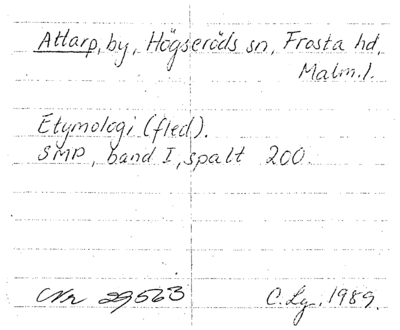 Attarp, by, Högseröds sn, Frosta hd,
Malm.l.
Etymologi (fled).
SMP, band I, spalt 200.
Nr 29563 C. Lg. 1989.